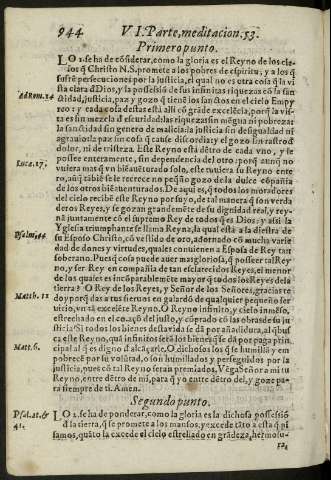 944 VI. Parte, meditacion. 53.
Primero punto.
LO 1. se ha de cōsiderar, como la gloria es el Reyno de los cie-
los q̃ Christo N.S. promete a los pobres de espiritu, y a los q̃
sufrē persecuciones por la justicia, el qual no es otra cosa q̃ la vi
sta clara d̃ Dios, y la possessiō de sus infinitas riquezas cō la san
Ad Rom. 14
tidad, justicia, paz y gozo q̃ tienē los sanctos en el cielo Empy
reo: y cada cosa destas està alli cō grāde excelēcia, porq̃ la vi-
sta es sin mezcla d̃ escuridad: las riquezas sin mēgua ni pobreza:
la sanctidad sin genero de malicia: la justicia sin desigualdad ni
agrauio: la paz sin cosa q̃ cause discordia: y el gozo sin rastro d̃
dolor, ni de tristeza. Este Reyno està dētro de cada vno, y le
Lucæ. 17.
possee enteramente, sin dependencia del otro: porq̃ aunq̃ no
vuiera mas q̃ vn bienauēturado solo, este tuuiera su Reyno ente
ro, aūq̃ tābiē se le recrece no peq̃ño gozo de la dulce cōpañia
de los otros biēauenturados. De aqui es, q̃ todos los moradores
del cielo recibē este Reyno por suyo, de tal manera q̃ son verda
deros Reyes, y se gozan grandemēte de su dignidad real, y rey-
nā juntamente cō el supremo Rey de todos q̃ es Dios: y assi la
Yglesia triumphante se llama Reyna, la qual està a la diestra de
Psalm. 44
su Esposo Christo, cō vestido de oro, adornado cō mucha varie
dad de dones y virtudes, quales conuienen a Esposa de Rey tan
soberano. Pues q̃ cosa puede auer mas gloriosa, q̃ posseer tal Rey
no, y ser Rey en compañia de tan esclarecidos Reyes, el menor
de los quales es incōparablemēte mayor q̃ todos los Reyes de la
Matth. 11
tierra? O Rey de los Reyes, y Señor de los Señores, gracias te
doy porq̃ das a tus sieruos en galardō de qualquier pequeño ser
uicio, vn tā excelēte Reyno. O Reyno infinito, y cielo inmēso,
estrechado en el coraçō del justo, y cōprado cō las obras de su ju
sticia! Si todos los bienes desta vida se dā por añadidura, al q̃ bus
Matt. 6.
ca este Reyno, quā infinitos serā los bienes q̃ se dā por paga prin
cipal al q̃ es digno d̃ alcāçarle. O dichosos los q̃ se humillā y em
pobrecē por tu volūtad, o son humillados y perseguidos por la
justicia, pues cō tal Reyno seran premiados. Vēga Señor a mi tu
Reyno, entre dētro de mi, para q̃ yo entre dētro del, y goze pa-
ra siempre de ti. Amen.
Segundo punto.
Psal. 21. &
41.
LO 2. se ha de ponderar, como la gloria es la dichosa possessiō
d̃ la tierra, q̃ se promete a los mansos, y excede tāto a esta q̃ pi
samos, quāto la excede el cielo estrellado en grādeza, hermosu-